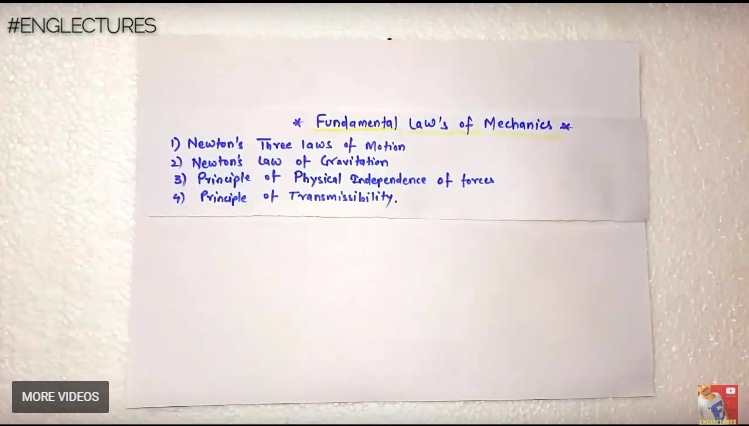 #ENGLECTURES
* Fundamental Law's of Mechanics *
1) Newton's Three laws of Motion
2) Newton's Law of Gravitation
3) Principle of Physical Independence of forces
4) Principle of Transmissibility.
MORE VIDEOS
ENGLECTURES